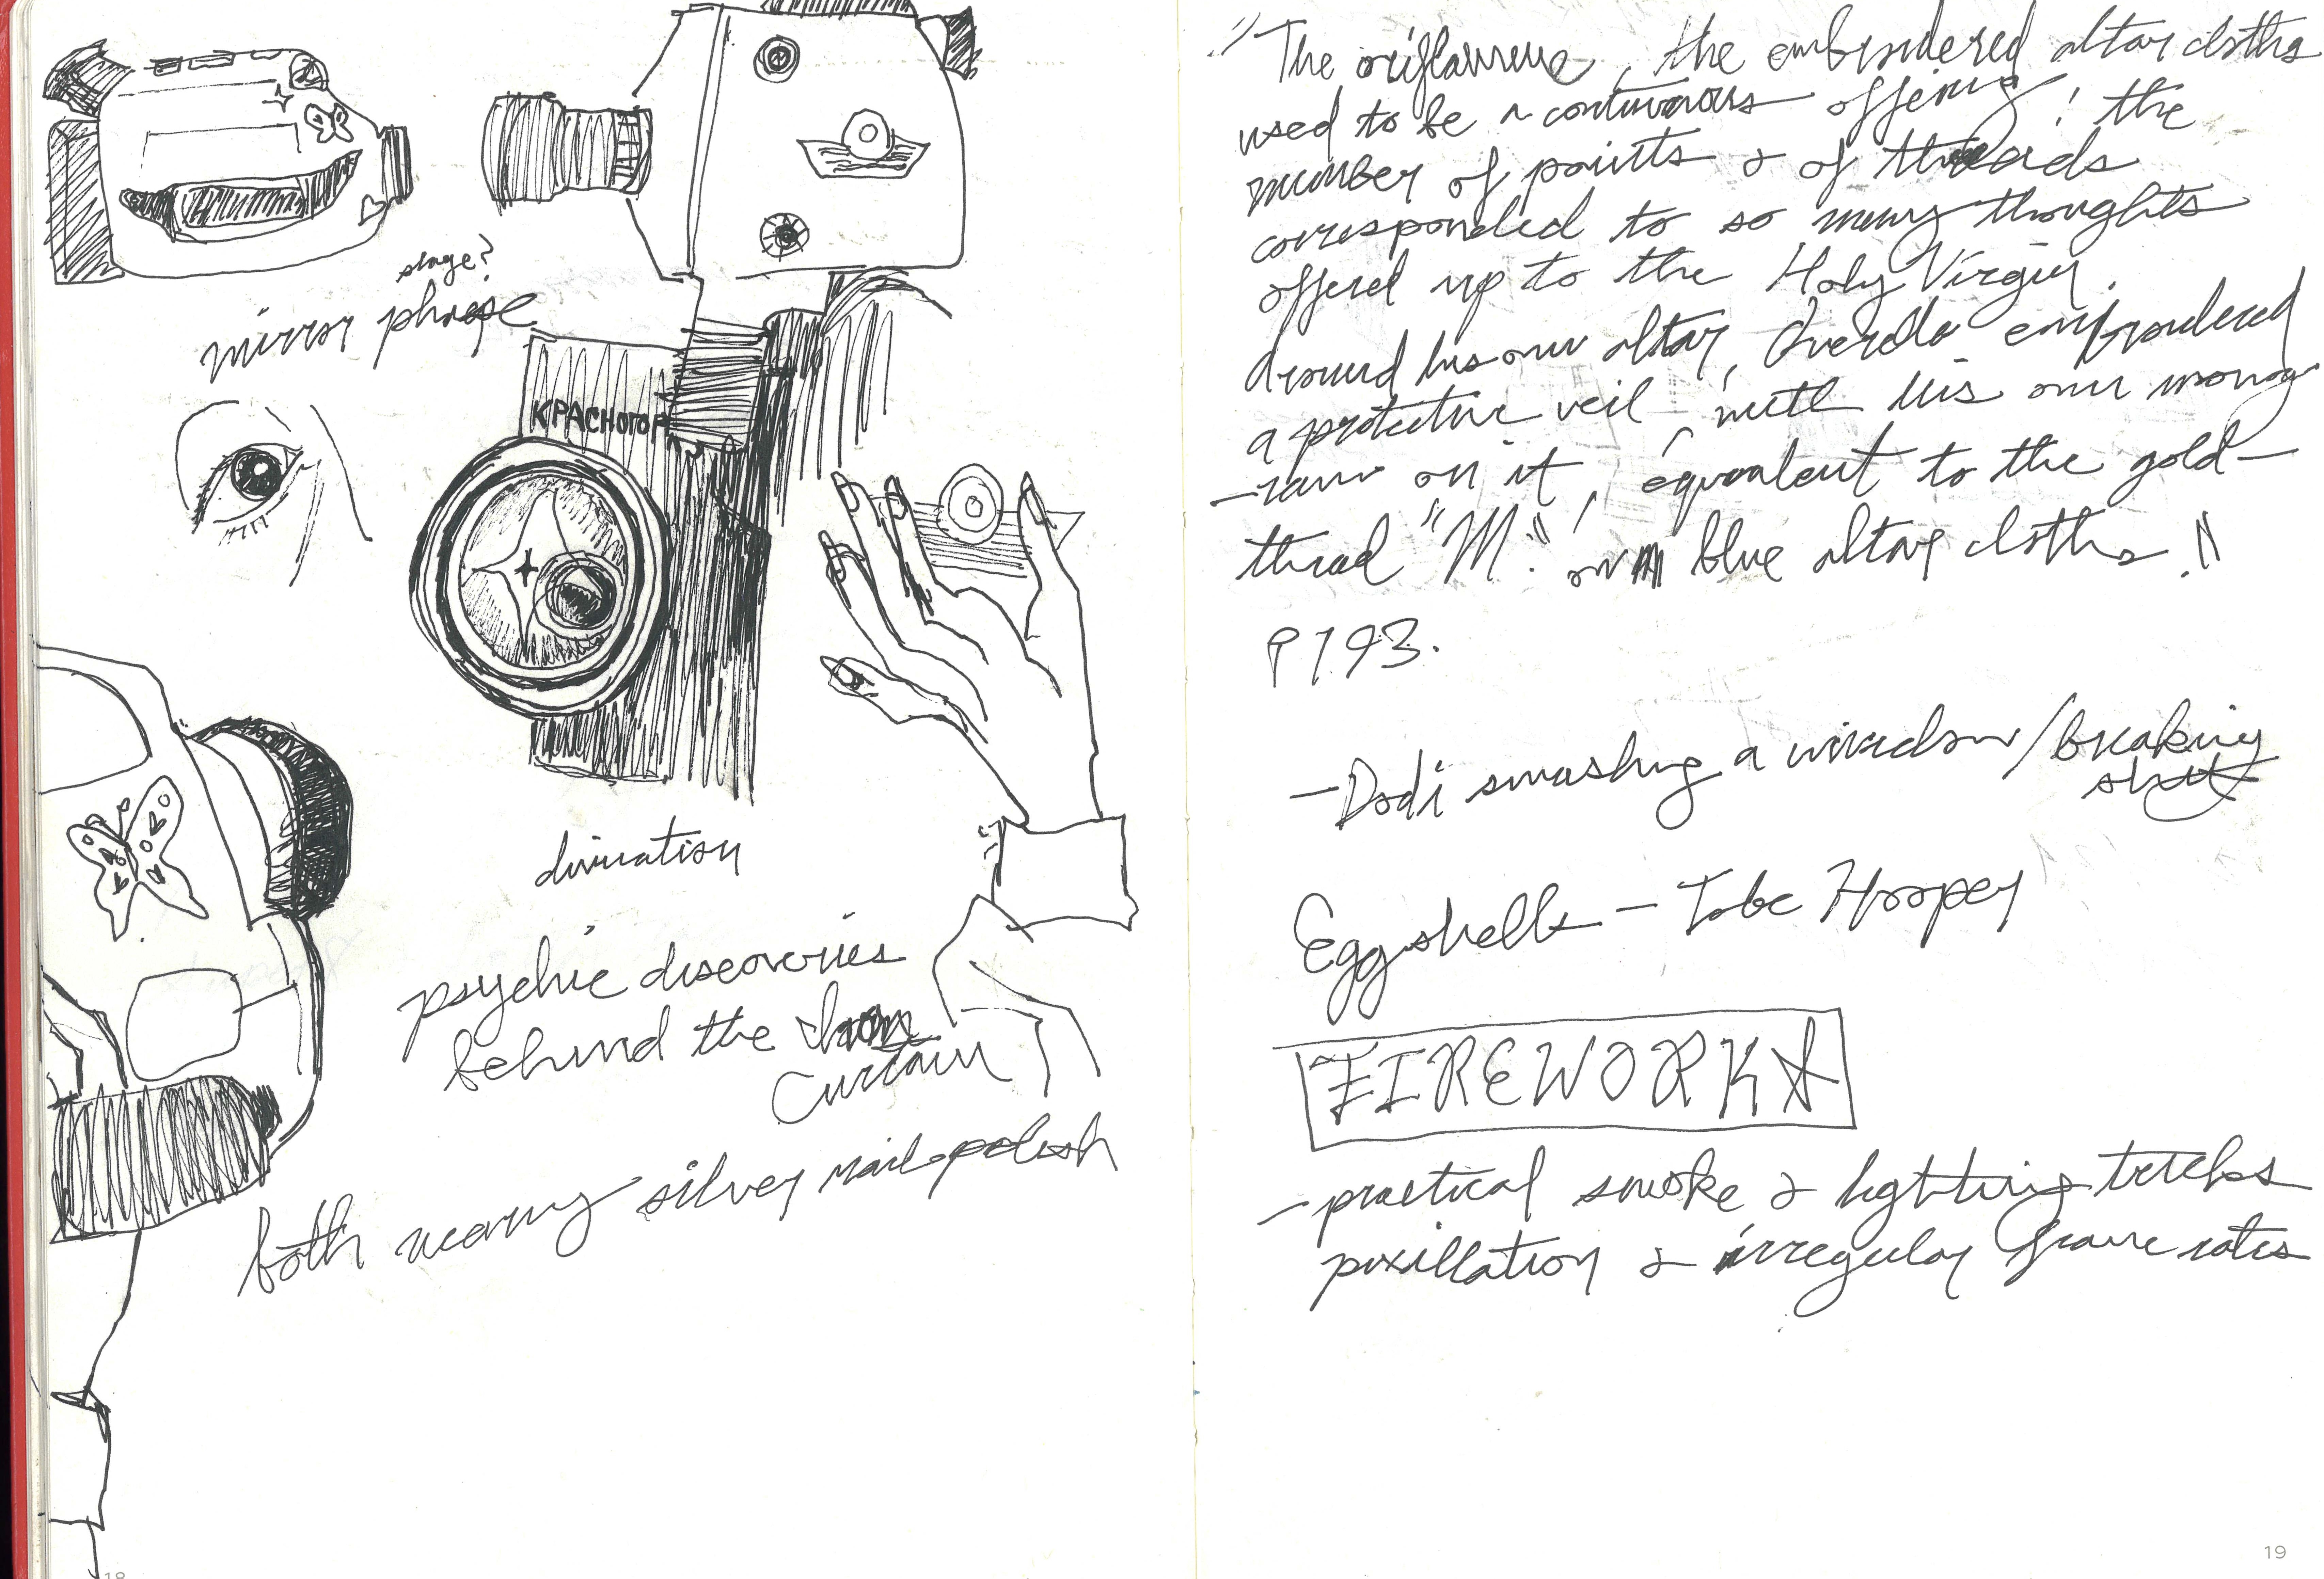 stage?
mirror phrase
КРАСНОГОР
divination
psychic discoveries
behind the Iron
Curtain
both wearing silver nail polish
18
"The oriflamme, the embroidered altar cloths
used to be a continuous offering! the
number of points & of threads
corresponded to so many thoughts
offered up to the Holy Virgin.
Around his own altar, embroidered
a protective veil, with his own monog
-ram on it, equivalent to the gold-
thread "M." on blue altar cloths."
P 193.
- Dodi smashing a window/breaking
shit
Eggshells - Tobe Hooper
FIREWORKS
- practical smoke & lighting tricks
pixillation & irregular frame rates
19